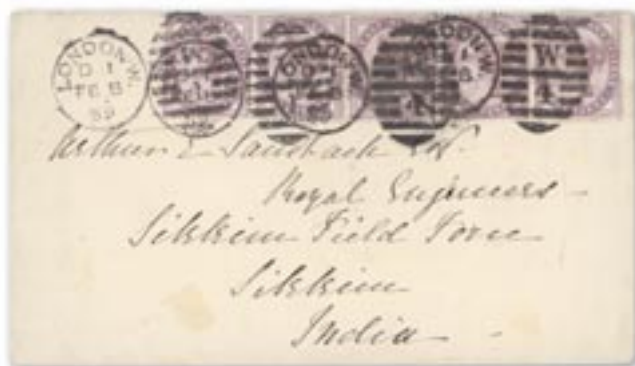 LONDON.W.
D 1
FE 8
89
LONDON.W.
W
4
Arthur E Sandbach Esq.
Royal Engineers
Sikkim Field Force
Sikkim
India